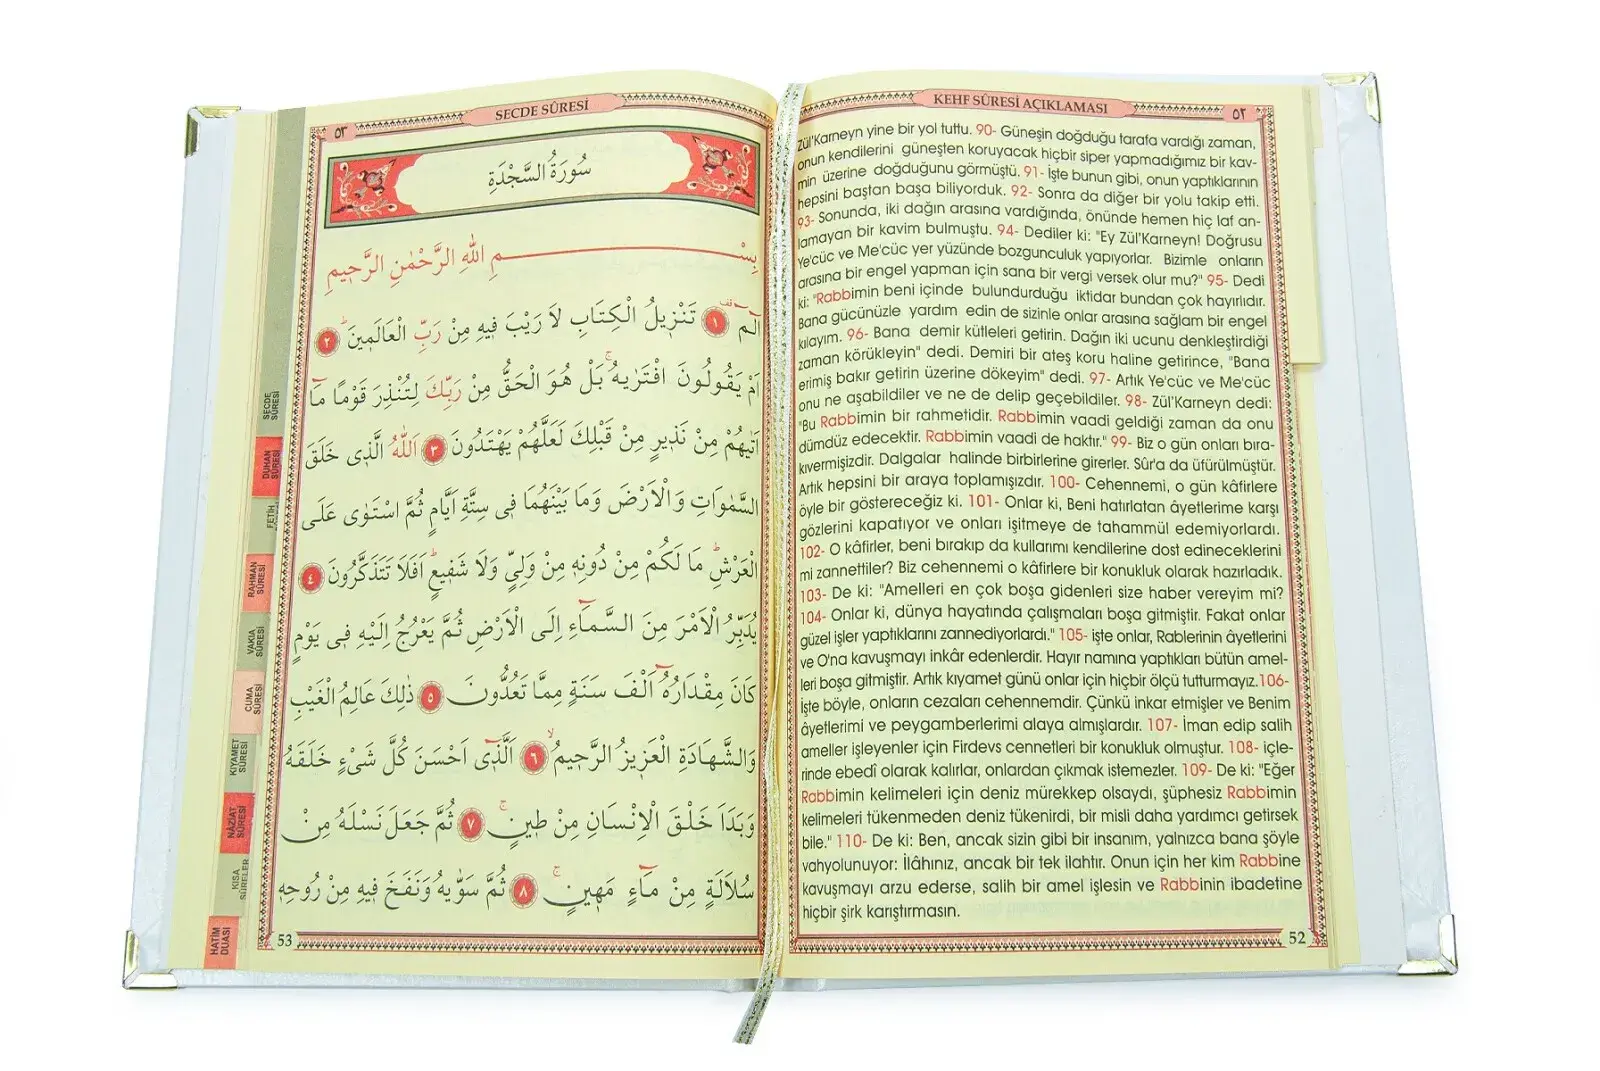 KEHF SÛRESİ AÇIKLAMASI
٥٢
Zül'Karneyn yine bir yol tuttu. 90- Güneşin doğduğu tarafa vardığı zaman,
onun kendilerini güneşten koruyacak hiçbir siper yapmadığımız bir kav-
min üzerine doğduğunu görmüştü. 91- İşte bunun gibi, onun yaptıklarının
hepsini baştan başa biliyorduk. 92- Sonra da diğer bir yolu takip etti.
93- Sonunda, iki dağın arasına vardığında, önünde hemen hiç laf an-
lamayan bir kavim bulmuştu. 94- Dediler ki: "Ey Zül'Karneyn! Doğrusu
Ye'cüc ve Me'cüc yer yüzünde bozgunculuk yapıyorlar. Bizimle onların
arasına bir engel yapman için sana bir vergi versek olur mu?" 95- Dedi
ki: "Rabbimin beni içinde bulundurduğu iktidar bundan çok hayırlıdır.
Bana gücünüzle yardım edin de sizinle onlar arasına sağlam bir engel
kılayım. 96- Bana demir kütleleri getirin. Dağın iki ucunu denkleştirdiği
zaman körükleyin" dedi. Demiri bir ateş koru haline getirince, "Bana
erimiş bakır getirin üzerine dökeyim" dedi. 97- Artık Ye'cüc ve Me'cüc
onu ne aşabildiler ve ne de delip geçebildiler. 98- Zül'Karneyn dedi:
"Bu Rabbimin bir rahmetidir. Rabbimin vaadi geldiği zaman da onu
dümdüz edecektir. Rabbimin vaadi de haktır." 99- Biz o gün onları bıra-
kıvermişizdir. Dalgalar halinde birbirlerine girerler. Sûr'a da üfürülmüştür.
Artık hepsini bir araya toplamışızdır. 100- Cehennemi, o gün kâfirlere
öyle bir göstereceğiz ki. 101- Onlar ki, Beni hatırlatan âyetlerime karşı
gözlerini kapatıyor ve onları işitmeye de tahammül edemiyorlardı.
102- O kâfirler, beni bırakıp da kullarımı kendilerine dost edineceklerini
mi zannettiler? Biz cehennemi o kâfirlere bir konukluk olarak hazırladık.
103- De ki: "Amelleri en çok boşa gidenleri size haber vereyim mi?
104- Onlar ki, dünya hayatında çalışmaları boşa gitmiştir. Fakat onlar
güzel işler yaptıklarını zannediyorlardı." 105- işte onlar, Rablerinin âyetlerini
ve O'na kavuşmayı inkâr edenlerdir. Hayır namına yaptıkları bütün amel-
leri boşa gitmiştir. Artık kıyamet günü onlar için hiçbir ölçü tutturmayız.106-
İşte böyle, onların cezaları cehennemdir. Çünkü inkar etmişler ve Benim
âyetlerimi ve peygamberlerimi alaya almışlardır. 107- İman edip salih
ameller işleyenler için Firdevs cennetleri bir konukluk olmuştur. 108- içle-
rinde ebedî olarak kalırlar, onlardan çıkmak istemezler. 109- De ki: "Eğer
Rabbimin kelimeleri için deniz mürekkep olsaydı, şüphesiz Rabbimin
kelimeleri tükenmeden deniz tükenirdi, bir misli daha yardımcı getirsek
bile." 110- De ki: Ben, ancak sizin gibi bir insanım, yalnızca bana şöyle
vahyolunuyor: İlâhınız, ancak bir tek ilahtır. Onun için her kim Rabbine
kavuşmayı arzu ederse, salih bir amel işlesin ve Rabbinin ibadetine
hiçbir şirk karıştırmasın.
52
SECDE SÛRESİ
٥٣
سُورَةُ السَّجْدَةِ
بِسْمِ اللّٰهِ الرَّحْمٰنِ الرَّحٖيمِ
الٓمٓ ۚ ١ تَنْزٖيلُ الْكِتَابِ لَا رَيْبَ فٖيهِ مِنْ رَبِّ الْعَالَمٖينَ ٢
اَمْ يَقُولُونَ افْتَرٰيهُ ۚ بَلْ هُوَ الْحَقُّ مِنْ رَبِّكَ لِتُنْذِرَ قَوْمًا مَٓا
اَتٰيهُمْ مِنْ نَذٖيرٍ مِنْ قَبْلِكَ لَعَلَّهُمْ يَهْتَدُونَ ٣ اَللّٰهُ الَّذٖى خَلَقَ
السَّمٰوَاتِ وَالْاَرْضَ وَمَا بَيْنَهُمَا فٖى سِتَّةِ اَيَّامٍ ثُمَّ اسْتَوٰى عَلَى
الْعَرْشِ مَا لَكُمْ مِنْ دُونِهٖ مِنْ وَلِىٍّ وَلَا شَفٖيعٍ اَفَلَا تَتَذَكَّرُونَ ٤
يُدَبِّرُ الْاَمْرَ مِنَ السَّمَٓاءِ اِلَى الْاَرْضِ ثُمَّ يَعْرُجُ اِلَيْهِ فٖى يَوْمٍ
كَانَ مِقْدَارُهُٓ اَلْفَ سَنَةٍ مِمَّا تَعُدُّونَ ٥ ذٰلِكَ عَالِمُ الْغَيْبِ
وَالشَّهَادَةِ الْعَزٖيزُ الرَّحٖيمُ ٦ اَلَّذٖٓى اَحْسَنَ كُلَّ شَىْءٍ خَلَقَهُ
وَبَدَاَ خَلْقَ الْاِنْسَانِ مِنْ طٖينٍ ٧ ثُمَّ جَعَلَ نَسْلَهُ مِنْ
سُلَالَةٍ مِنْ مَٓاءٍ مَهٖينٍ ٨ ثُمَّ سَوّٰيهُ وَنَفَخَ فٖيهِ مِنْ رُوحِهٖ
53
SECDE
SÛRESİ
DUHAN
SÛRESİ
FETİH
RAHMAN
SÛRESİ
VAKIA
SÛRESİ
CUMA
SÛRESİ
KIYAMET
SÛRESİ
NÂZİAT
SÛRESİ
KISA
SÛRELER
HATİM
DUASI